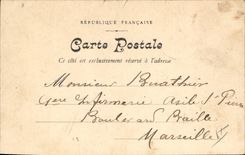 RÉPUBLIQUE FRANÇAISE
Carte Postale
Ce côté est exclusivement réservé à l'adresse
Monsieur
Infirmerie Asile St
Boulevard Baille
Marseille